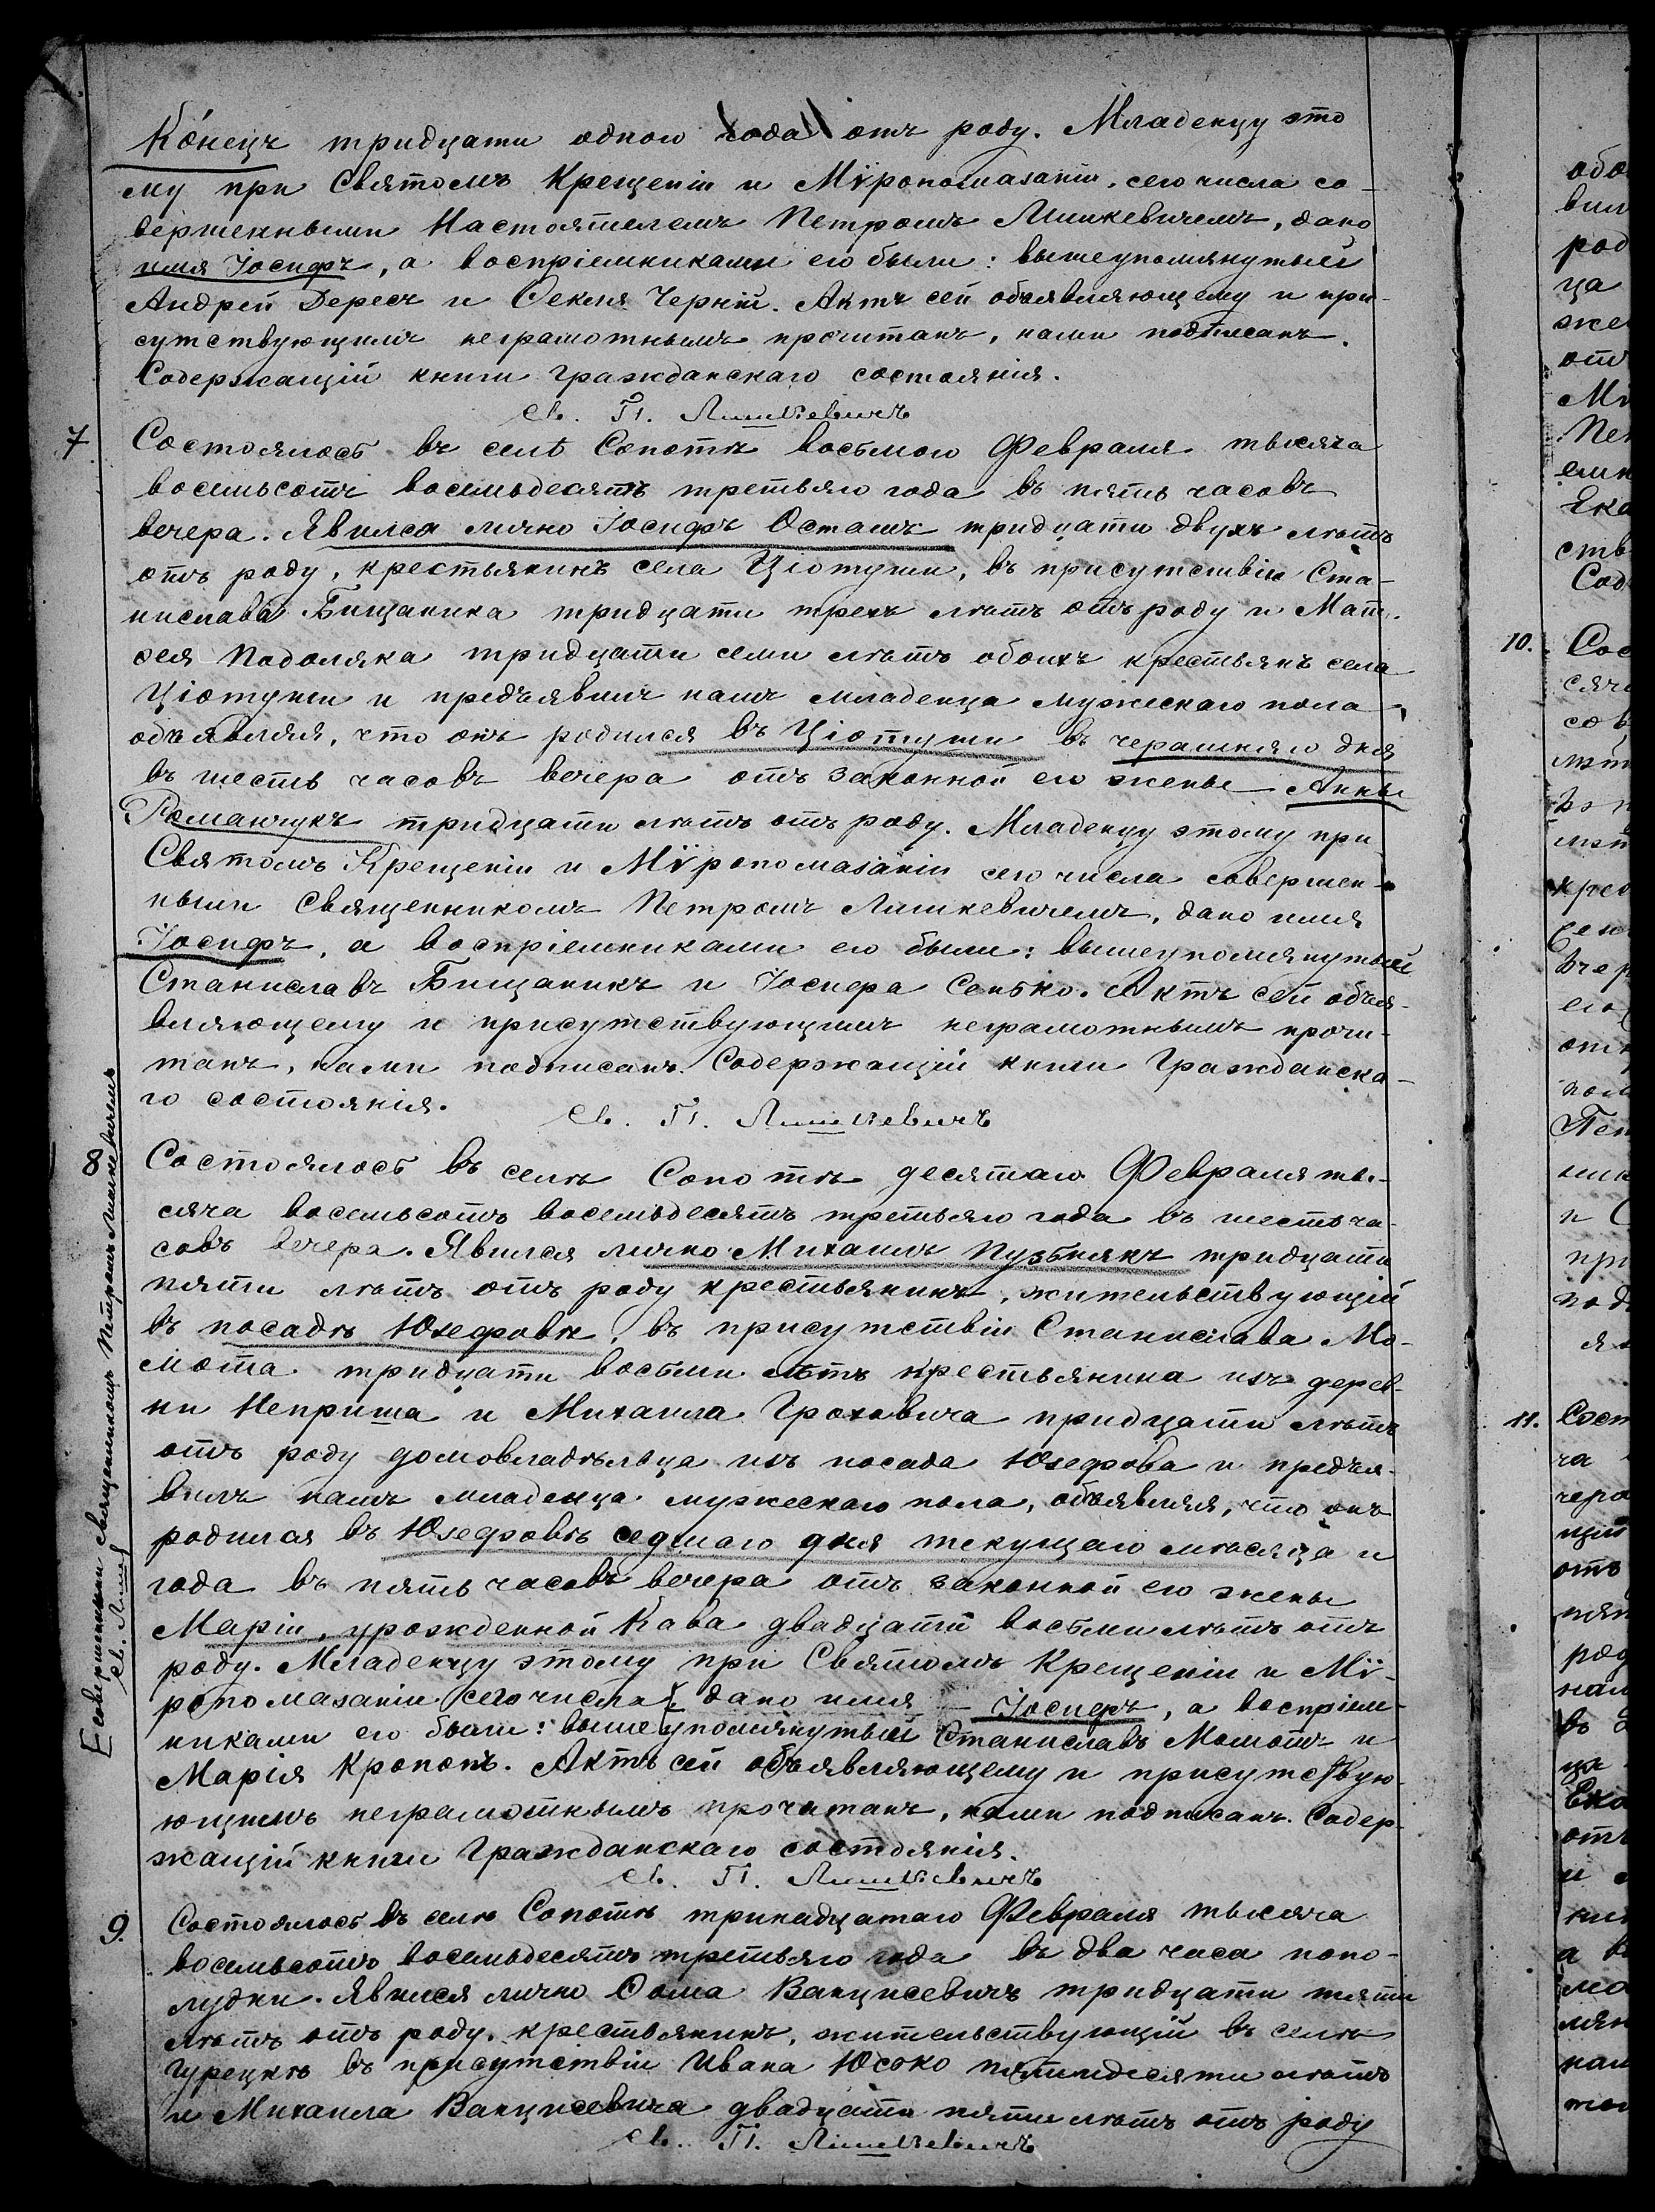 Конецъ тридцати одного года отъ роду. Младенцу это
му при Святомъ Крещеніи и Мѵропомазаніи, сего числа со-
вершенными Настоятелемъ Петромъ Лишкевичемъ, дано
имя Іосифъ, а воспріемниками его были: вышеупомянутый
Андрей Дересъ и Ѳекля Черній. Актъ сей объявляющему и при-
сутствующимъ неграмотнымъ прочитанъ, нами подписанъ.
Содержащій книги гражданскаго состоянія.
Св. П. Лишкевичъ
7 Состоялось въ селѣ Сопотѣ восьмого Февраля тысяча
восемьсотъ восемьдесятъ третьяго года въ пять часовъ
вечера. Явился лично Іосифъ Осташъ тридцати двухъ лѣтъ
отъ роду, крестьянинъ села Ціотуши, въ присутствіи Ста-
нислава Бищаника тридцати трехъ лѣтъ отъ роду и Мат-
ѳея Подоляка тридцати семи лѣтъ обоихъ крестьянъ села
Ціотуши и предъявилъ намъ младенца мужескаго пола,
объявляя, что онъ родился въ Ціотуши въ черашняго дня
въ шесть часовъ вечера отъ законной его жены Анны
Романчукъ тридцати лѣтъ отъ роду. Младенцу этому при
Святомъ Крещеніи и Мѵропомазаніи сего числа совершен-
ными Священникомъ Петромъ Лишкевичемъ, дано имя
Іосифъ, а воспріемниками его были: вышеупомянутый
Станиславъ Бищаникъ и Іосифа Сенько. Актъ сей объя-
вляющему и присутствующимъ неграмотнымъ прочи-
танъ, нами подписанъ. Содержащій книги Гражданска-
го состоянія.
Св. П. Лишкевичъ
8 Состоялось въ селѣ Сопотѣ десятаго Февраля ты-
сяча восемьсотъ восемьдесятъ третьяго года въ шесть ча-
совъ вечера. Явился лично Михаилъ Пузьнякъ тридцати
пяти лѣтъ отъ роду крестьянинъ, жительствующій
въ посадѣ Юзефовѣ, въ присутствіи Станислава Мо-
мота тридцати восьми лѣтъ крестьянина изъ дерев-
ни Неприша и Михаила Гроховича тридцати лѣтъ
отъ роду домовладѣльца изъ посада Юзефова и предъя-
вилъ намъ младенца мужескаго пола, объявляя, что онъ
родился въ Юзефовѣ седмаго дня текущаго мѣсяца и
года въ пять часовъ вечера отъ законной его жены
Маріи, урожденной Кава двадцати восьми лѣтъ отъ
роду. Младенцу этому при Святомъ Крещеніи и Мѵ-
ропомазаніи сего числа дано имя – Іосифъ, а воспріем-
никами его были: вышеупомянутый Станиславъ Момотъ и
Марія Кропопъ. Актъ сей объявляющему и присутствую-
ющимъ неграмотнымъ прочитанъ, нами подписанъ. Содер-
жащій книги Гражданскаго состоянія.
Св. П. Лишкевичъ
совершенными Священникомъ Петромъ Лишкевичемъ
Св. Лиш
9. Состоялось въ селѣ Сопотѣ тринадцатаго Февраля тысяча
восемьсотъ восемьдесятъ третьяго года въ два часа попо-
лудни. Явился лично Ѳома Ванцисевичъ тридцати пяти
лѣтъ отъ роду, крестьянинъ, жительствующій въ селѣ
Гурецкѣ въ присутствіи Ивана Юсоко пятидесяти лѣтъ
и Михаила Ванцисевича двадцати пяти лѣтъ отъ роду
Св. П. Лишкевичъ
10.
11.